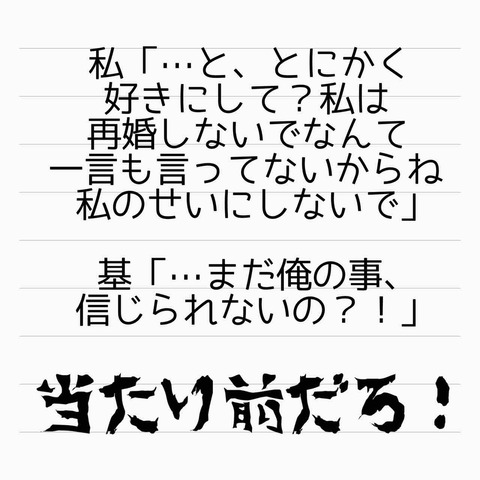 私「…と、とにかく
好きにして？私は
再婚しないでなんて
一言も言ってないからね
私のせいにしないで」
基「…まだ俺の事、
信じられないの？！」
当たり前だろ！